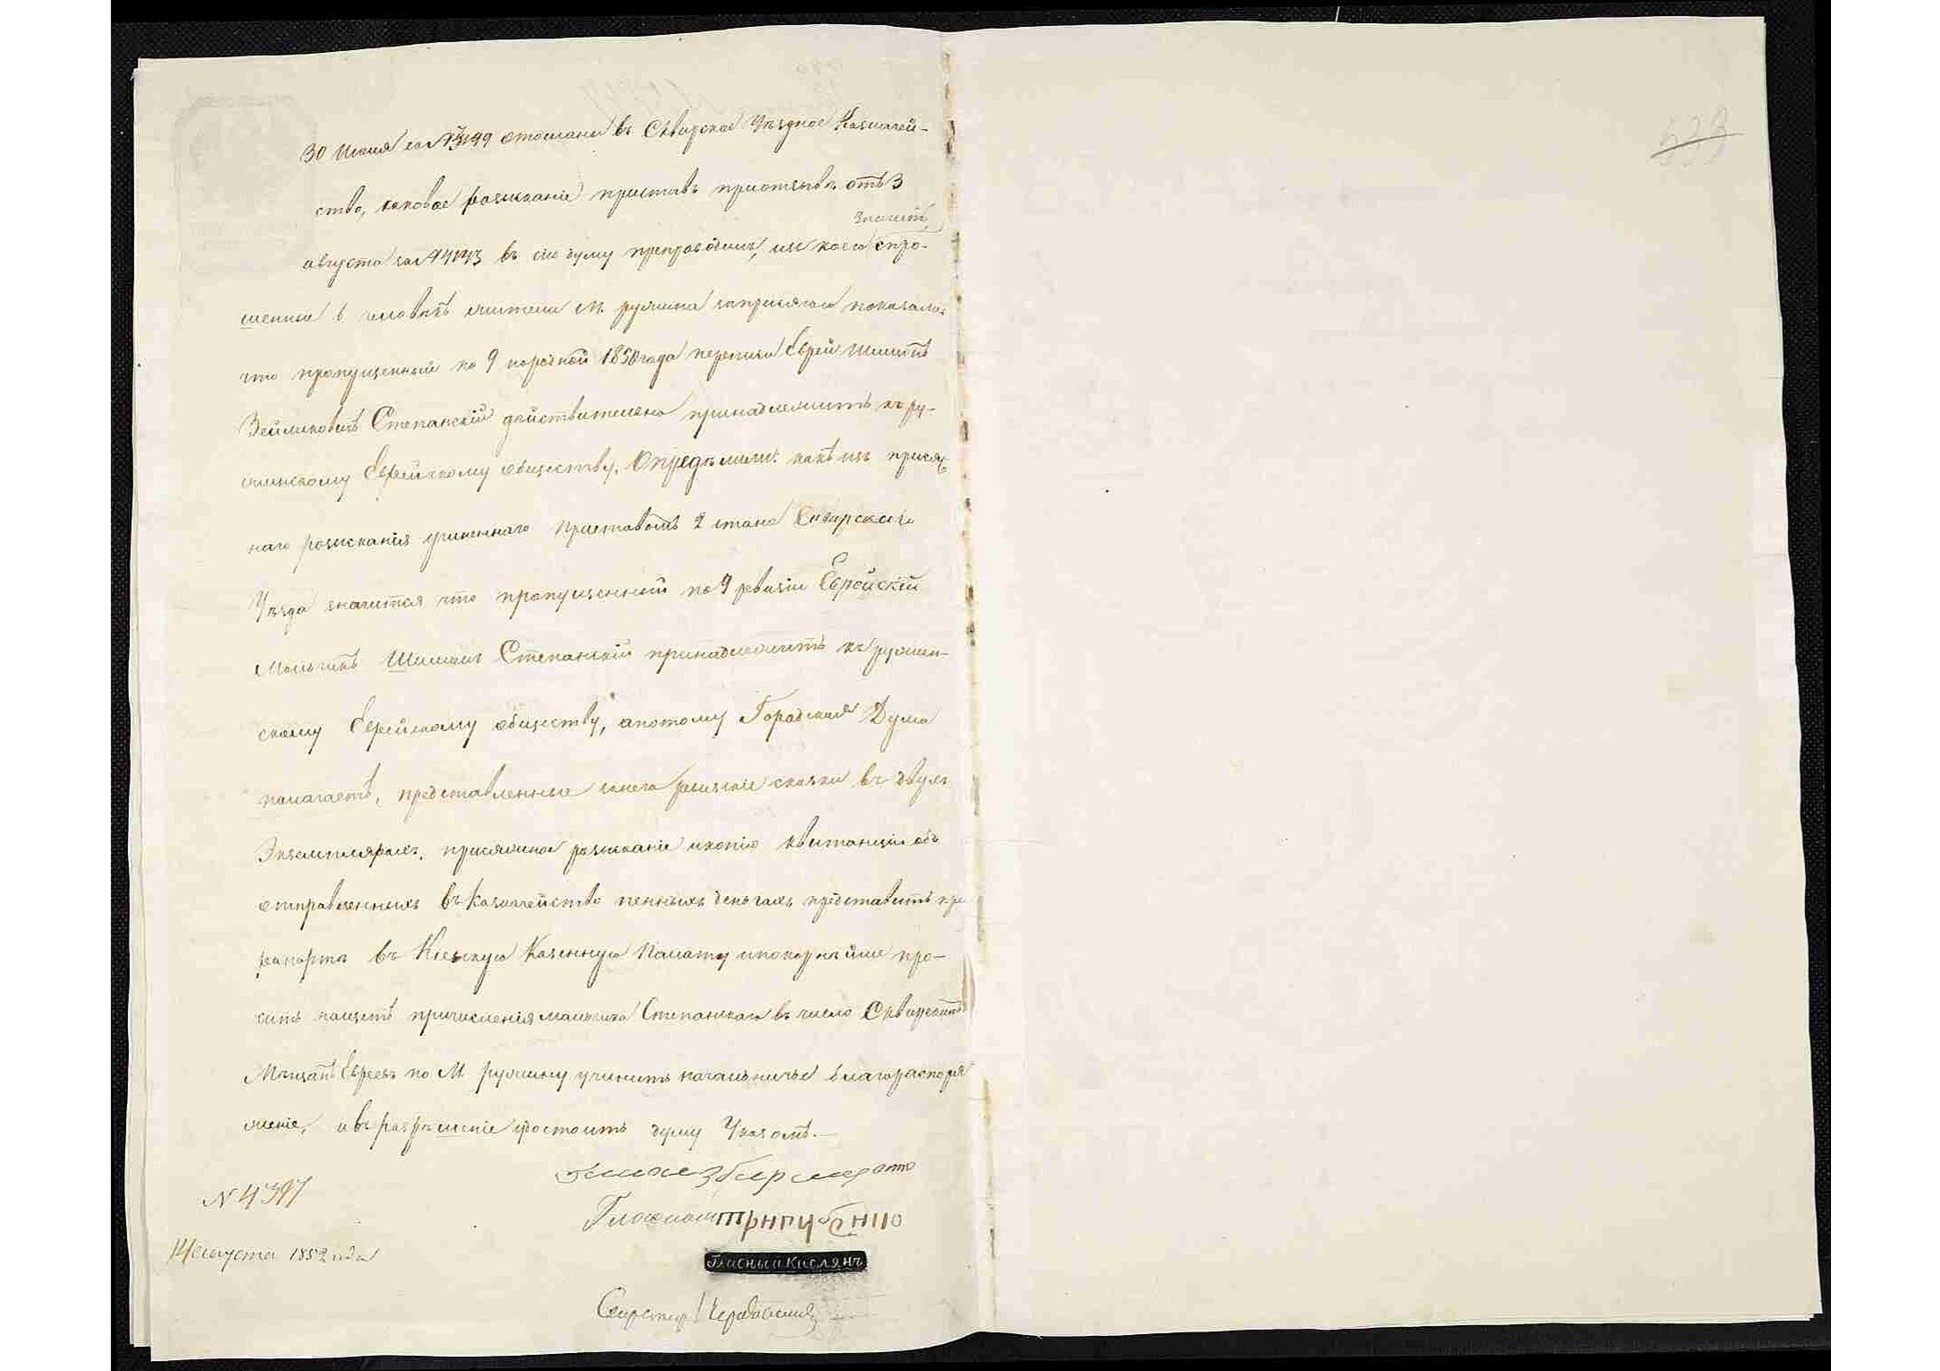 533
30 Июня за № 3199 отосланы въ Сквирское Уѣздное Казначей-
ство, каковое розысканіе приставъ приотзывѣ отъ 3
значитъ,
августа за № 4143 въ сію думу препроводилъ, изъ коего спро-
шенные в человѣкъ жители М. ружина заприсягою показали,
что пропущенный по 9 народной 1850 года переписи Еврей
Зейликовичъ Степанскій действительно принадлежитъ къ ру-
жинскому Еврейскому обществу, Определили: какъ изъ присяж
наго розысканія учиненнаго Приставомъ 2 стана Сквирскаго
Уѣзда значится что пропущенный по 9 ревизіи Еврейскій
Мальчикъ Степанскій принадлежитъ къ ружин-
скому Еврейскому обществу, апотому Городская Дума
полагаетъ, представленные ревизские сказки въ двухъ
Экземплярахъ, присяжное розысканіе икопію квитанціи объ
отправленныхъ въ Казначейство пенныхъ деньгахъ представить при
рапортѣ въ Кіевскую Казенную Палату ипокорнѣйше про-
сить нащетъ причисленія мальчика Степанскаго въ число Сквирскихъ
Мѣщанъ Евреевъ по М ружину учинить начальничье благораспоря
женіе, ивъ разрѣшеніе удостоить думу Указомъ.—
Гласный Кислянъ
Секретарь
№ 4397
14 августа 1852 года